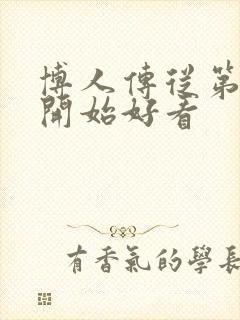 博人傳從第
開始好看
有香氣的學長